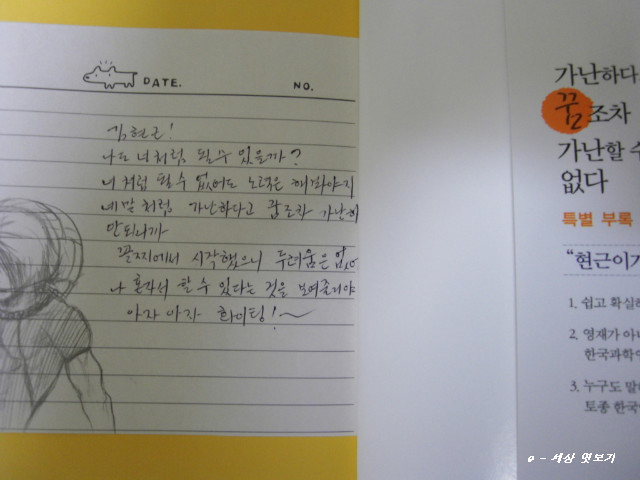 DATE. NO.
김현근!
나도 너처럼 될수 있을까?
너처럼 될수 없어도 노력은 해봐야지
네 말처럼 가난하다고 꿈조차 가난해
안되니까
꼴찌에서 시작했으니 두려움은 없어
나 혼자서 할 수 있다는 것을 보여줄거야
아자 아자 화이팅!~
가난하다
꿈조차
가난할 수
없다
특별 부록
"현근이가
1. 쉽고 확실하
2. 영재가 아니
한국과학영
3. 누구도 말하
토종 한국
e - 세상 엿보기